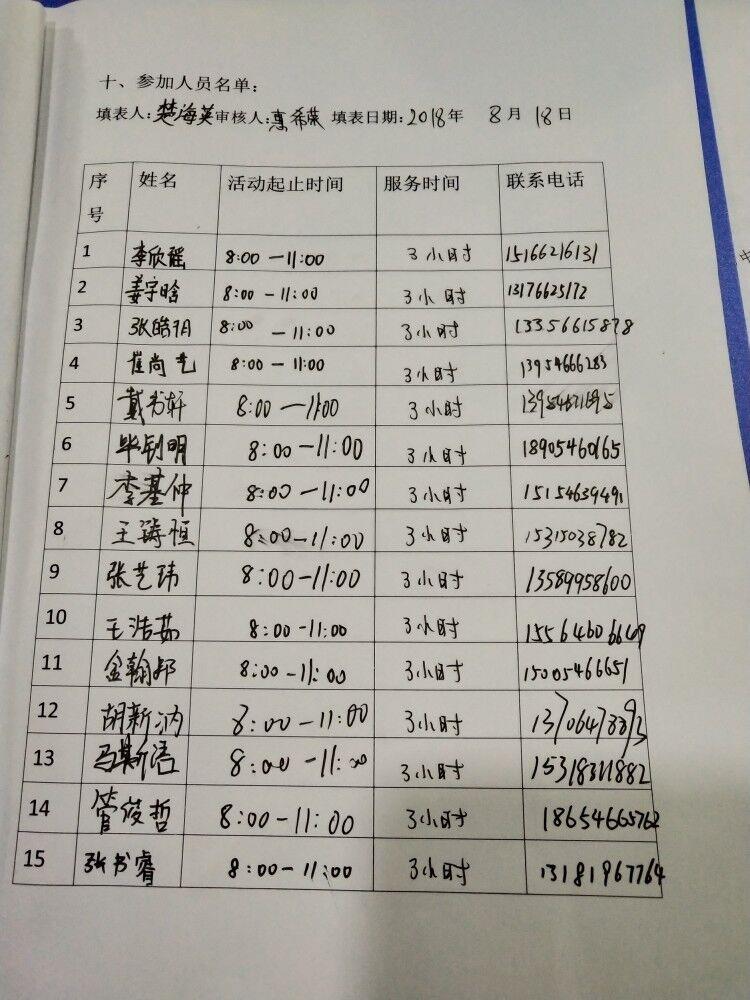 十、参加人员名单：
填表人：楚海英 审核人：高希荣 填表日期：2018年 8月 18日
序号 姓名 活动起止时间 服务时间 联系电话
1 李欣瑶 8:00—11:00 3小时 15166216131
2 姜宇晗 8:00—11:00 3小时 13176625172
3 张皓玥 8:00—11:00 3小时 13356615878
4 崔尚艺 8:00—11:00 3小时 13954666283
5 戴书轩 8:00—11:00 3小时
6 毕钊明 8:00—11:00 3小时 18905460165
7 李基仲 8:00—11:00 3小时 15154639491
8 王铸恒 8:00—11:00 3小时 15315038782
9 张艺玮 8:00—11:00 3小时 13589958600
10 王浩茹 8:00—11:00 3小时 15564606649
11 金翰邦 8:00—11:00 3小时 15005466651
12 胡新汭 8:00—11:00 3小时
13 马斯语 8:00—11:00 3小时 15318311882
14 管俊哲 8:00—11:00 3小时 18654665762
15 张书睿 8:00—11:00 3小时 13181967764